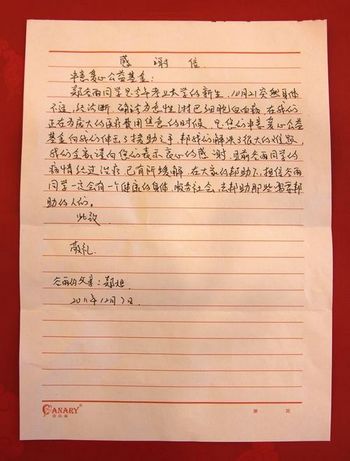 感谢信
丰意爱心公益基金:
郑冬雨同学是今年考上大学的新生,10月21突然身体
不适,经诊断,确诊为恶性淋巴细胞白血病,在我们
正在为庞大的医疗费用焦急的时候,是您们丰意爱心公益
基金向我们伸出了援助之手,帮我们解决了很大的难题,
我们全家谨向您们表示衷心的感谢,目前冬雨同学的
病情经过治疗,已有所缓解,在大家的帮助下,相信冬雨
同学一定会有一个健康的身体,服务社会,去帮助那些需要帮
助的人们。
此致
敬礼
冬雨的父亲:郑
2011年12月7日.
CANARY®
第 页